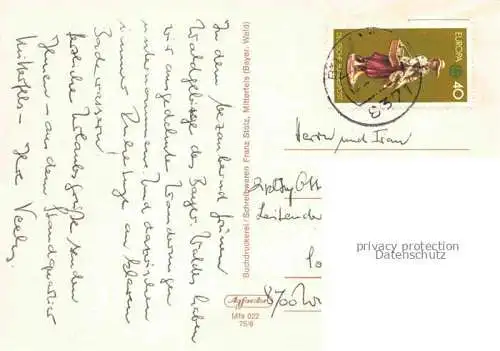 In dem bezaubernd grünen
Waldgebirge des Bayr. Waldes haben
wir ausgedehnte Wanderungen
unternommen und dazwischen
immer Ruhetage an klaren
Badewassern!
Herzliche Urlaubsgrüße senden
Ihnen – aus dem Standquartier
Mitterfels – Ihre
Buchdruckerei/Schreibwaren Franz Stolz, Mitterfels (Bayer. Wald)
Agfacolor
Mfs 022
75/6
EUROPA
40
DEUTSCHE BUNDESPOST
Herrn und Frau
Leitender
8700
privacy protection
Datenschutz